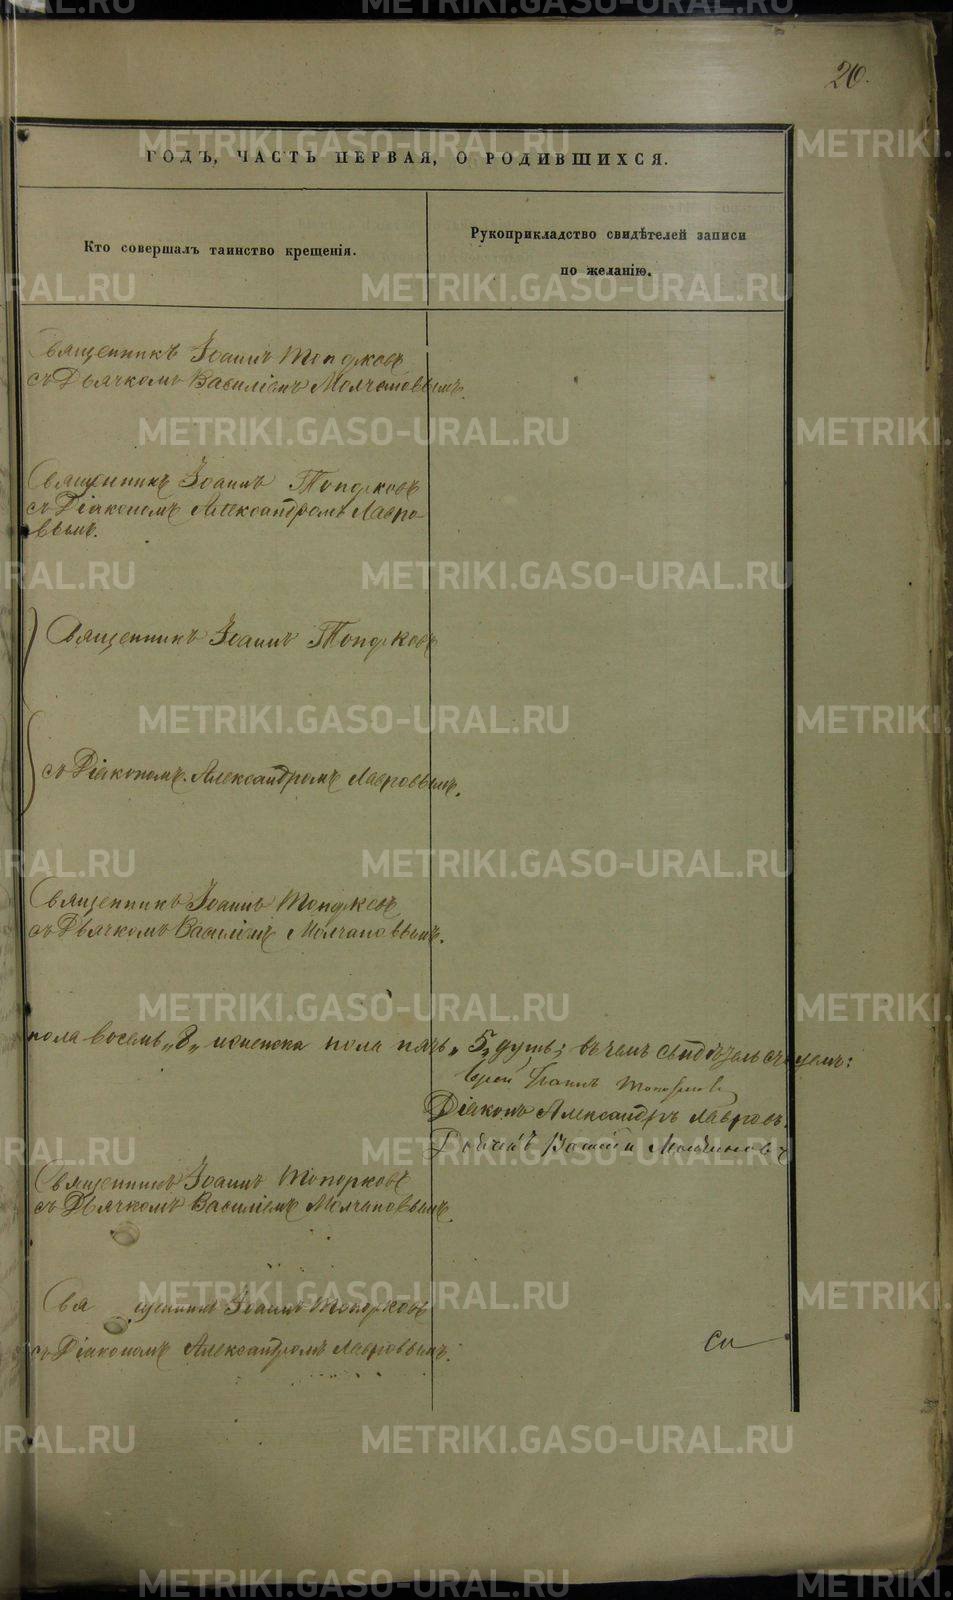 20.
ГОДЪ, ЧАСТЬ ПЕРВАЯ, О РОДИВШИХСЯ.
Кто совершалъ таинство крещенія.
Рукоприкладство свидѣтелей записи
по желанію.
Священникъ Іоаннъ Топорковъ
съ Дьячкомъ Василіемъ Молчановымъ.
Священникъ Іоаннъ Топорковъ
съ Діакономъ Александромъ Лавро-
вымъ.
Священникъ Іоаннъ Топорковъ
съ Діакономъ Александромъ Лавровымъ.
Священникъ Іоаннъ Топорковъ
съ Дьячкомъ Василіемъ Молчановымъ.
пола восемь „8„ и женска пола пять „5„ душъ; въ чемъ свидѣтельствуемъ:
Іерей Іоаннъ Топорковъ
Діаконъ Александръ Лавровъ.
Василій Молчановъ
Священникъ Іоаннъ Топорковъ
съ Дьячкомъ Василіемъ Молчановымъ.
Священникъ Іоаннъ Топорковъ
съ Діакономъ Александромъ Лавровымъ.
METRIKI.GASO-URAL.RU